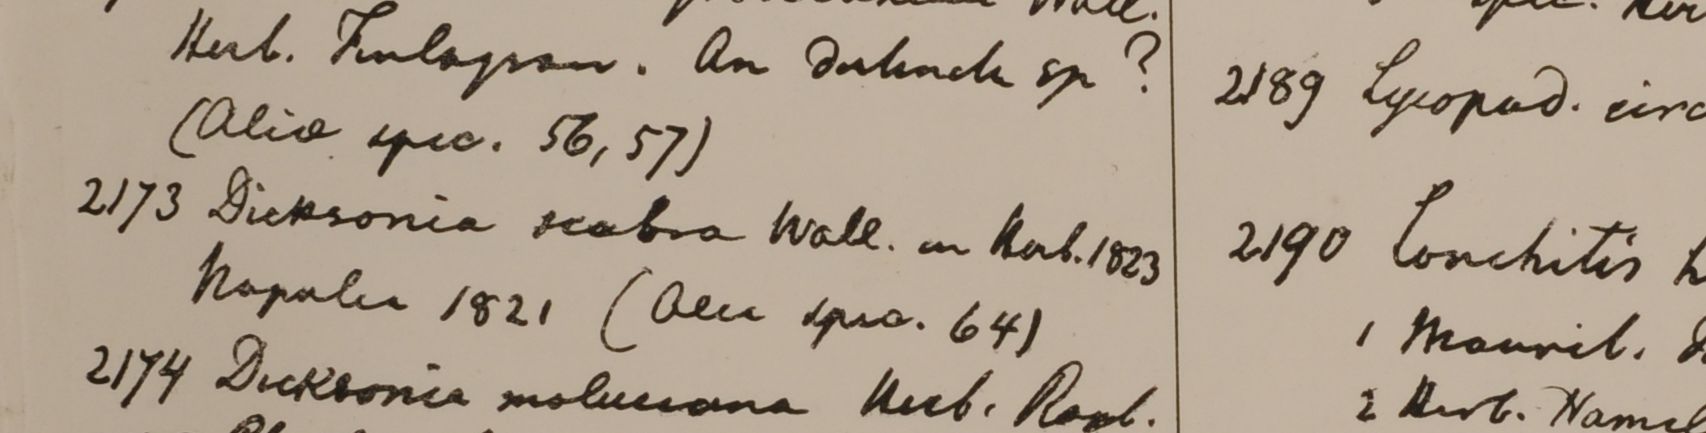 Wall.
Herb. Finlayson. An distincta sp?
(Alia spec. 56, 57)
2173 Dicksonia scabra Wall. in Herb. 1823
Napalia 1821 (Alia spec. 64)
2174 Dicksonia moluccana Herb. Roxb.
spec. Her
2189 Lycopod. circ
2190 Lonchitis h
1 Maurit.
2 Herb. Hamil